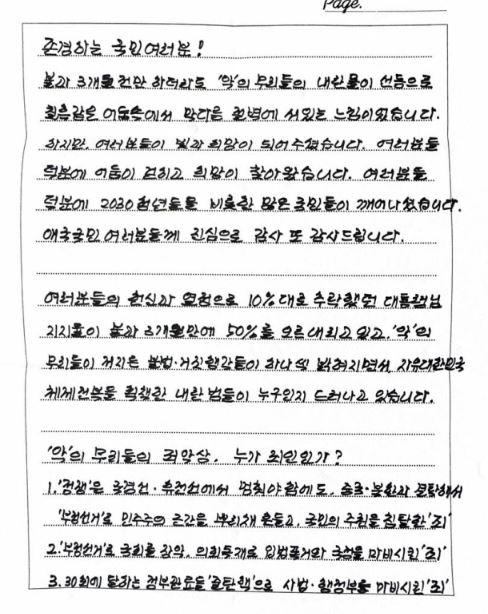 Page.
존경하는 국민여러분!
불과 3개월 전만 하더라도 '악'의 무리들의 내란몰이 선동으로
칠흑같은 어둠속에서 막다른 절벽에 서있는 느낌이었습니다.
하지만, 여러분들이 빛과 희망이 되어 주셨습니다. 여러분들
덕분에 어둠이 걷히고 희망이 찾아왔습니다. 여러분들
덕분에 2030 청년들을 비롯한 많은 국민들이 깨어나셨습니다.
애국국민 여러분들께 진심으로 감사 또 감사드립니다.
여러분들의 헌신과 열정으로 10%대로 추락했던 대통령님
지지율이 불과 3개월만에 50%를 오르내리고 있고, '악'의
무리들이 저지른 불법·거짓행각들이 하나씩 밝혀지면서 자유대한민국
체제전복을 획책한 내란범들이 누구인지 드러나고 있습니다.
'악'의 무리들의 죄악상, 누가 죄인인가?
1. '정쟁'은 국경선·휴전선에서 멈춰야함에도, 중국·북한과 결탁해서
'부정선거'로 민주주의 근간을 뿌리채 흔들고, 국민의 주권을 침탈한 '죄'
2. '부정선거'로 국회를 장악, 의회독재로 입법폭거와 국정을 마비시킨 '죄'
3. 30회에 달하는 정부관료들 '줄탄핵'으로 사법·행정부를 마비시킨 '죄'